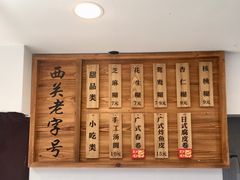 西关老字号
甜品类
芝麻糊
7元
花生糊
7元
鸳鸯糊
8元
杏仁糊
9元
核桃糊
9元
小吃类
手工汤圆
10元
广式春卷
广式炸鱼皮
15元
日式腐皮卷